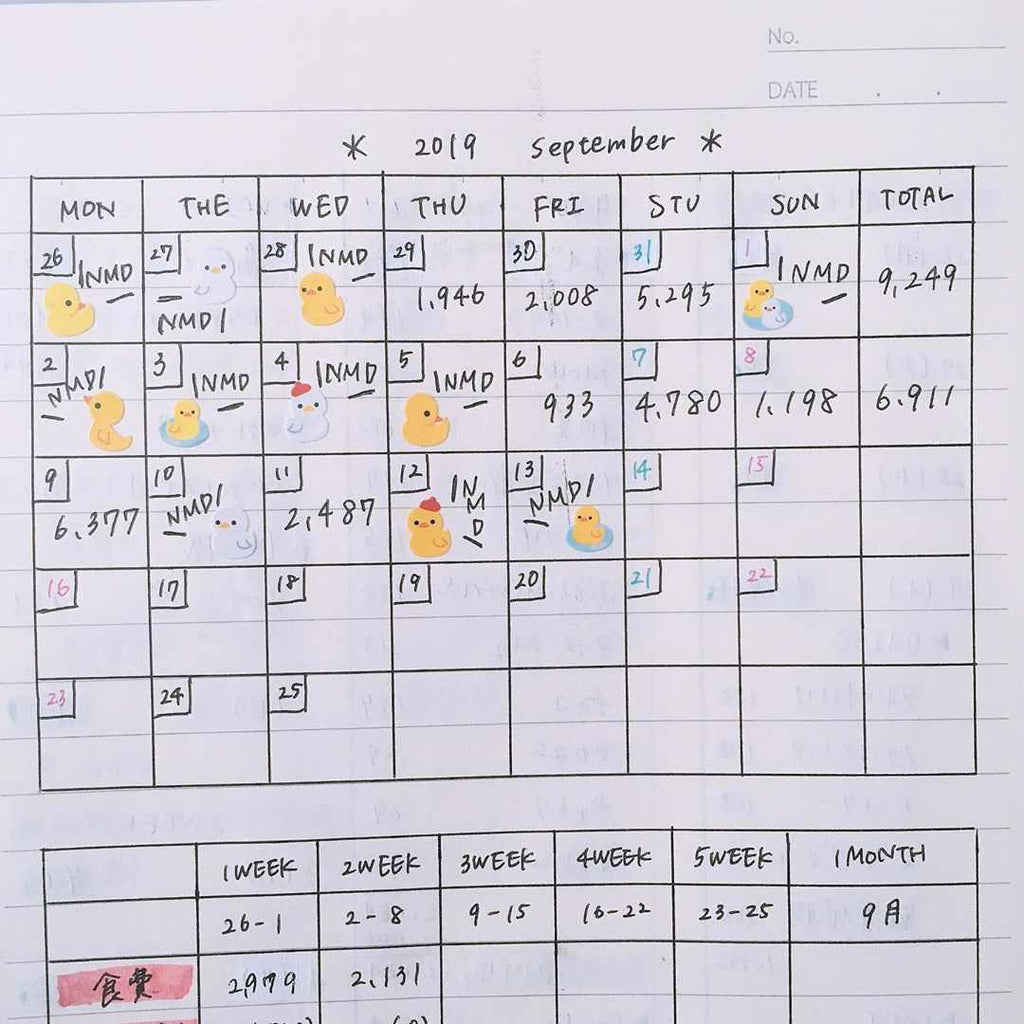 No.
DATE . .
* 2019 September *
MON THE WED THU FRI STU SUN TOTAL
26 1NMD 27 NMD1 28 1NMD 29 1,946 30 2,008 31 5,295 1 1NMD 9,249
2 NMD1 3 1NMD 4 1NMD 5 1NMD 6 933 7 4.780 8 1.198 6.911
9 6.377 10 NMD1 11 2,487 12 1NMD 13 NMD1 14 15
16 17 18 19 20 21 22
23 24 25
1WEEK 2WEEK 3WEEK 4WEEK 5WEEK 1MONTH
26-1 2-8 9-15 16-22 23-25 9月
食費 2,979 2,131